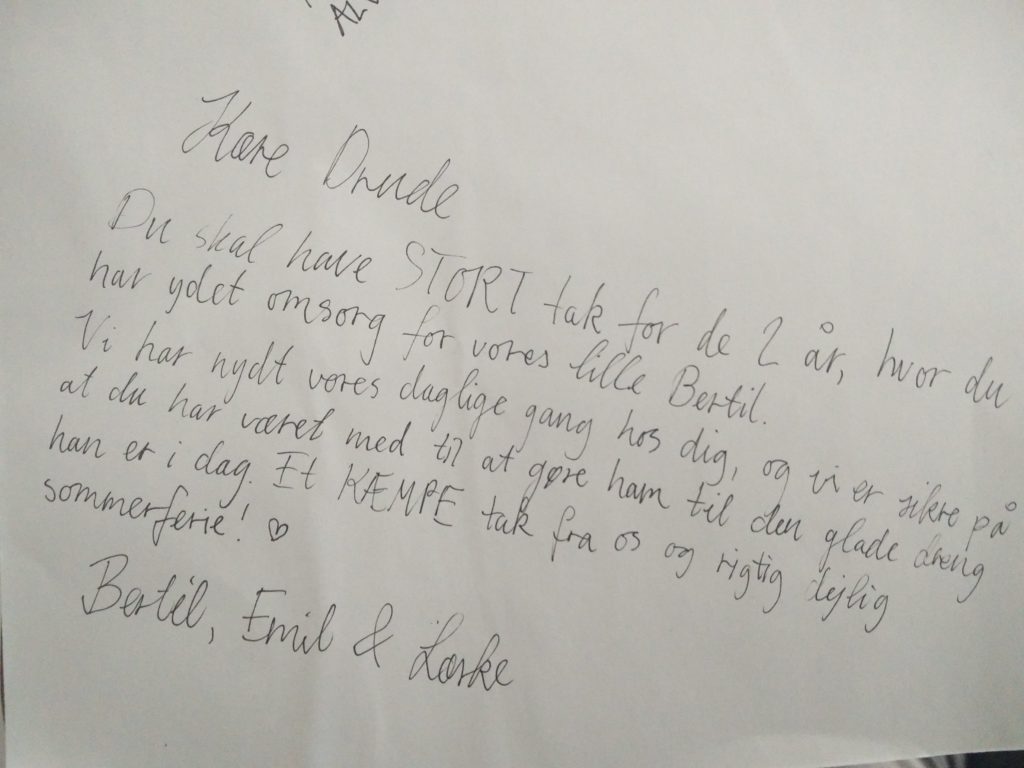 Kære Drude
Du skal have STORT tak for de 2 år, hvor du
har ydet omsorg for vores lille Bertil.
Vi har nydt vores daglige gang hos dig, og vi er sikre på
at du har været med til at gøre ham til den glade dreng
han er i dag. Et KÆMPE tak fra os og rigtig dejlig
sommerferie! ♡
Bertil, Emil & Lærke